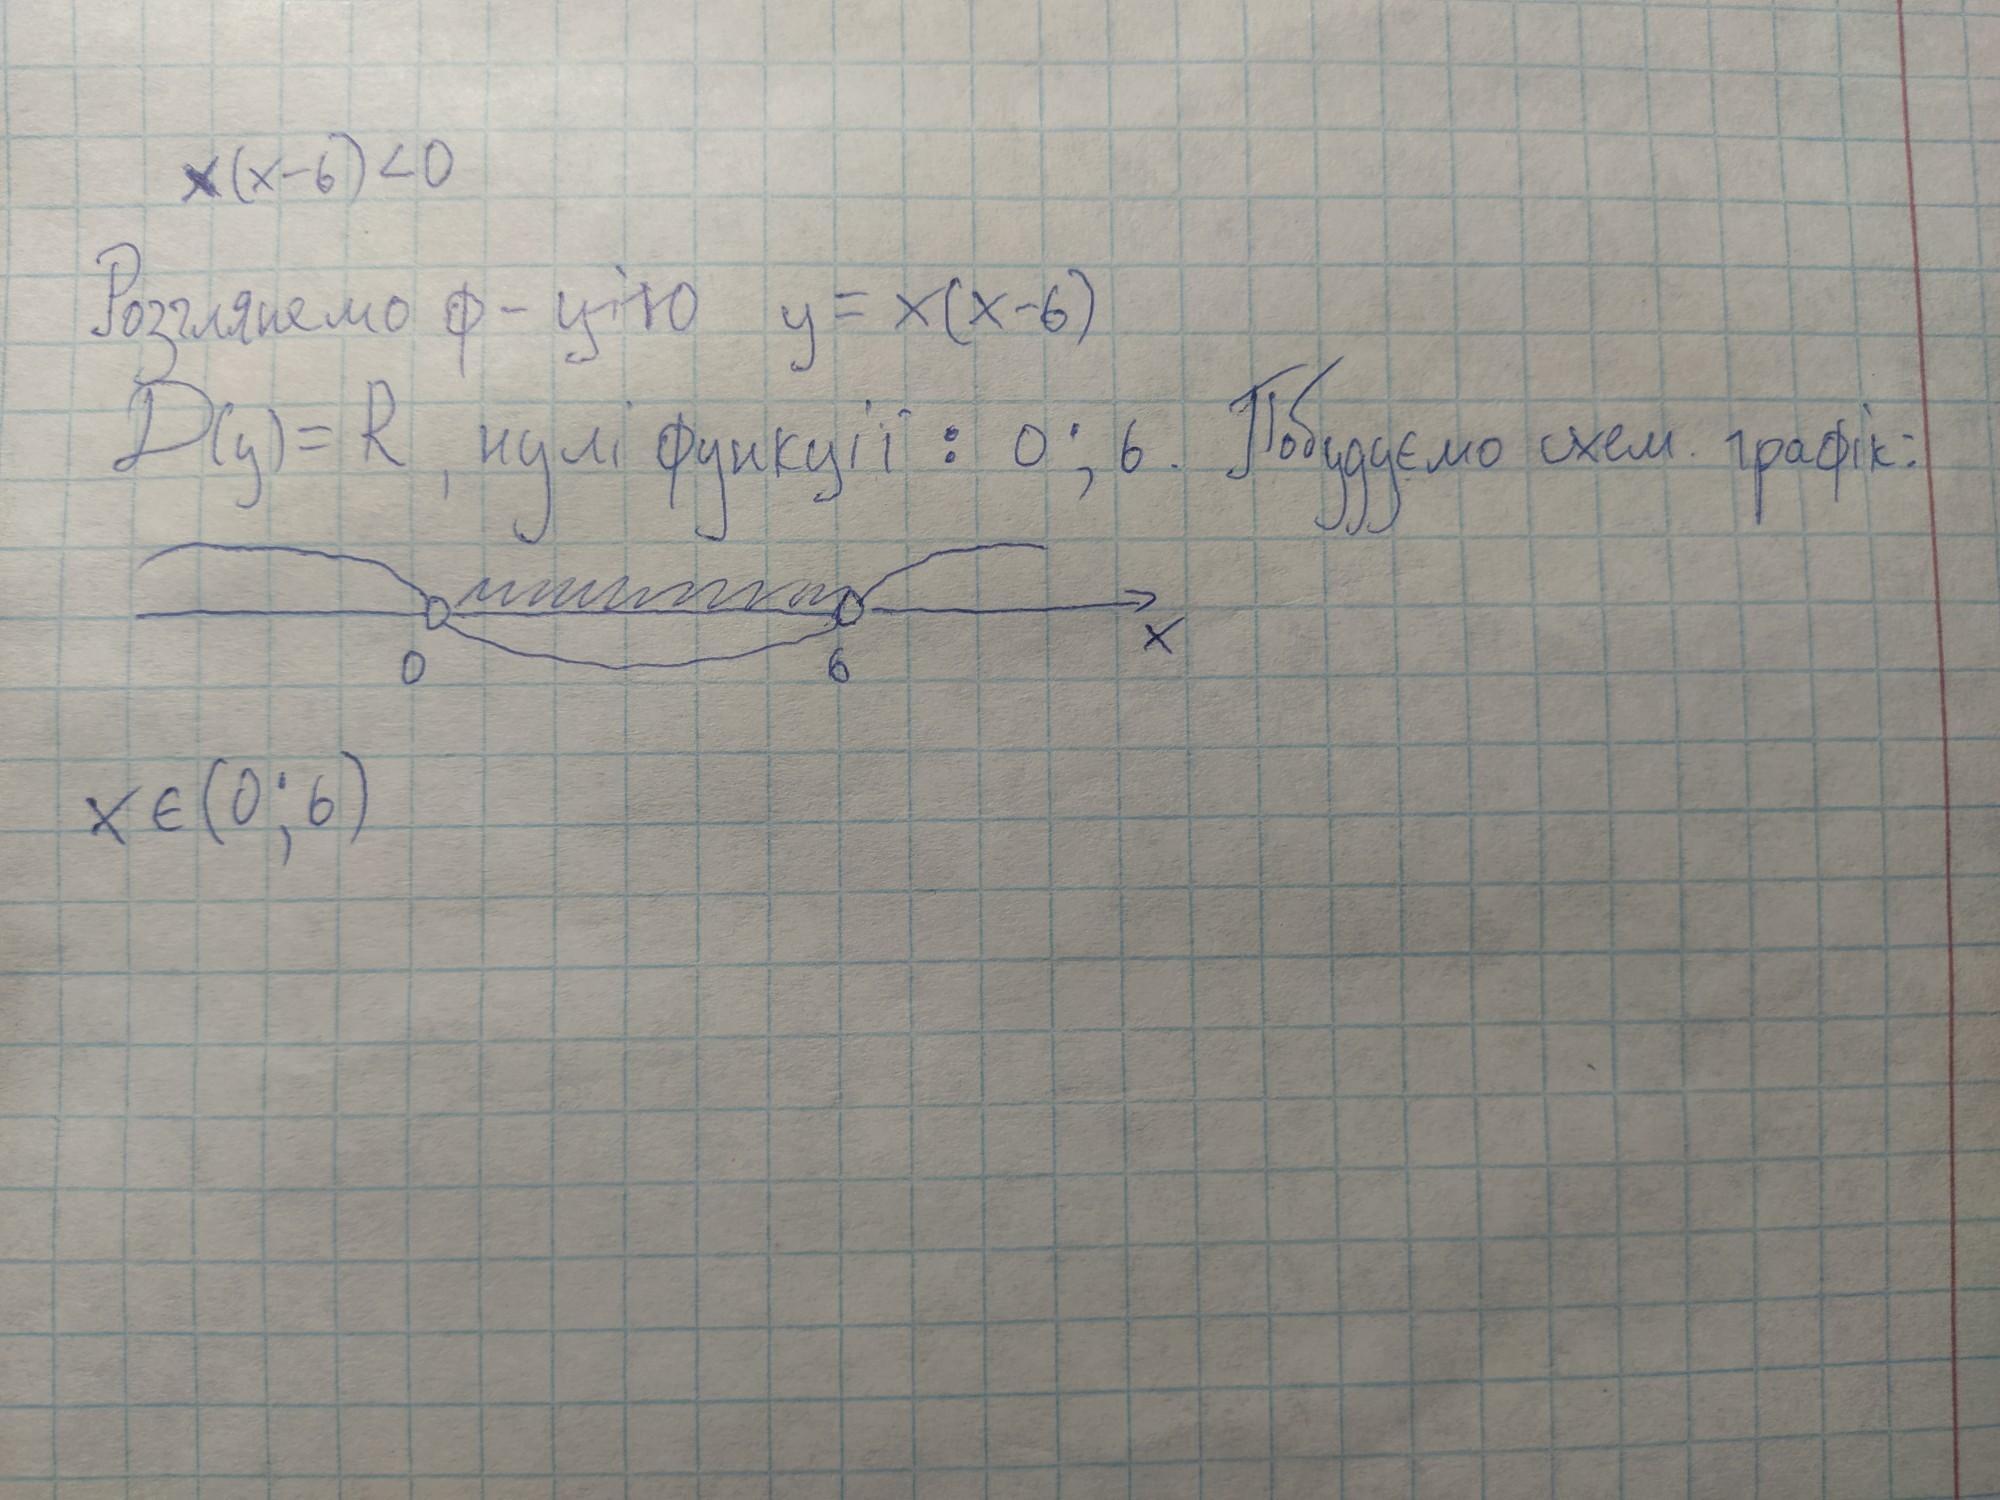 x(x-6)<0
Розглянемо ф-цію y = x(x-6)
D(y)=R, нулі функції : 0 ; 6. Побудуємо схем. графік:
0 6 x
x є (0 ; 6)